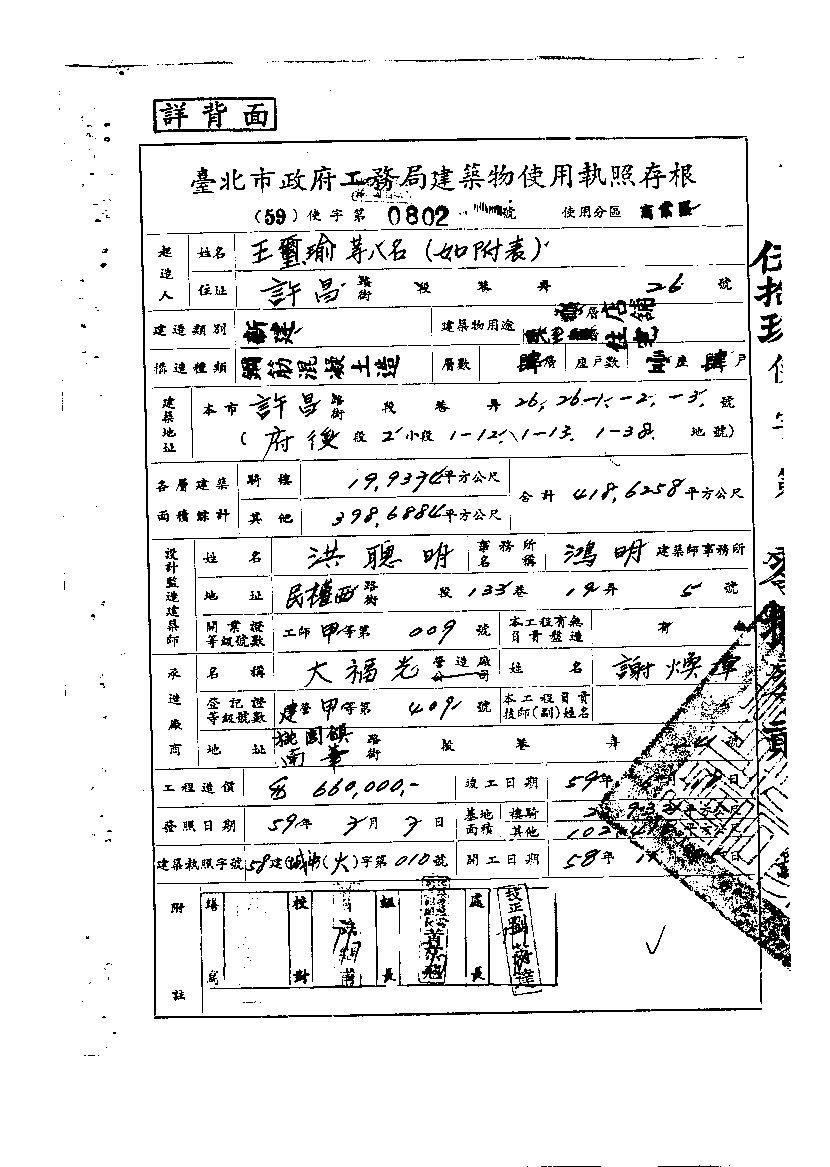 詳背面
臺北市政府工務局建築物使用執照存根
(59) 使字第 0802 號 使用分區 商業區
起造人 姓名 王璽瑜等八名(如附表)
住址 許昌 路街 段 巷 弄 26 號
建造類別 新建 建築物用途 店舖 住宅
構造種類 鋼筋混凝土造 層數 肆層 座戶數 座 肆戶
建築地址 本市 許昌 路街 段 巷 弄 26, 26-1, -2, -3, 號
( 府後 段 2 小段 1-12, 1-13, 1-38, 地號)
各層建築面積綜計 騎樓 19,9374 平方公尺 合計 418,6258 平方公尺
其他 398,6884 平方公尺
設計監造建築師 姓名 洪聰明 事務所名稱 鴻明 建築師事務所
地址 民權西 路街 段 133 巷 12 弄 5 號
開業證等級號數 工師 甲 等第 009 號 本工程有無負責監造 有
承造廠商 名稱 大福光 營造廠 公司 姓名 謝煥章
登記證等級號數 建營 甲 等第 409 號 本工程負責技師(副)姓名
地址 桃園鎮南華 路街 段 巷 弄 號
工程造價 660,000,- 竣工日期 59年 月 18日
發照日期 59年 2月 2日 基地面積 騎樓 平方公尺
其他 平方公尺
建築執照字號 58建(城內)(火)字第010號 開工日期 58年 日
附註 繕寫 校對 組長 處長
技正劉
伍拾玖使字第零捌零貳